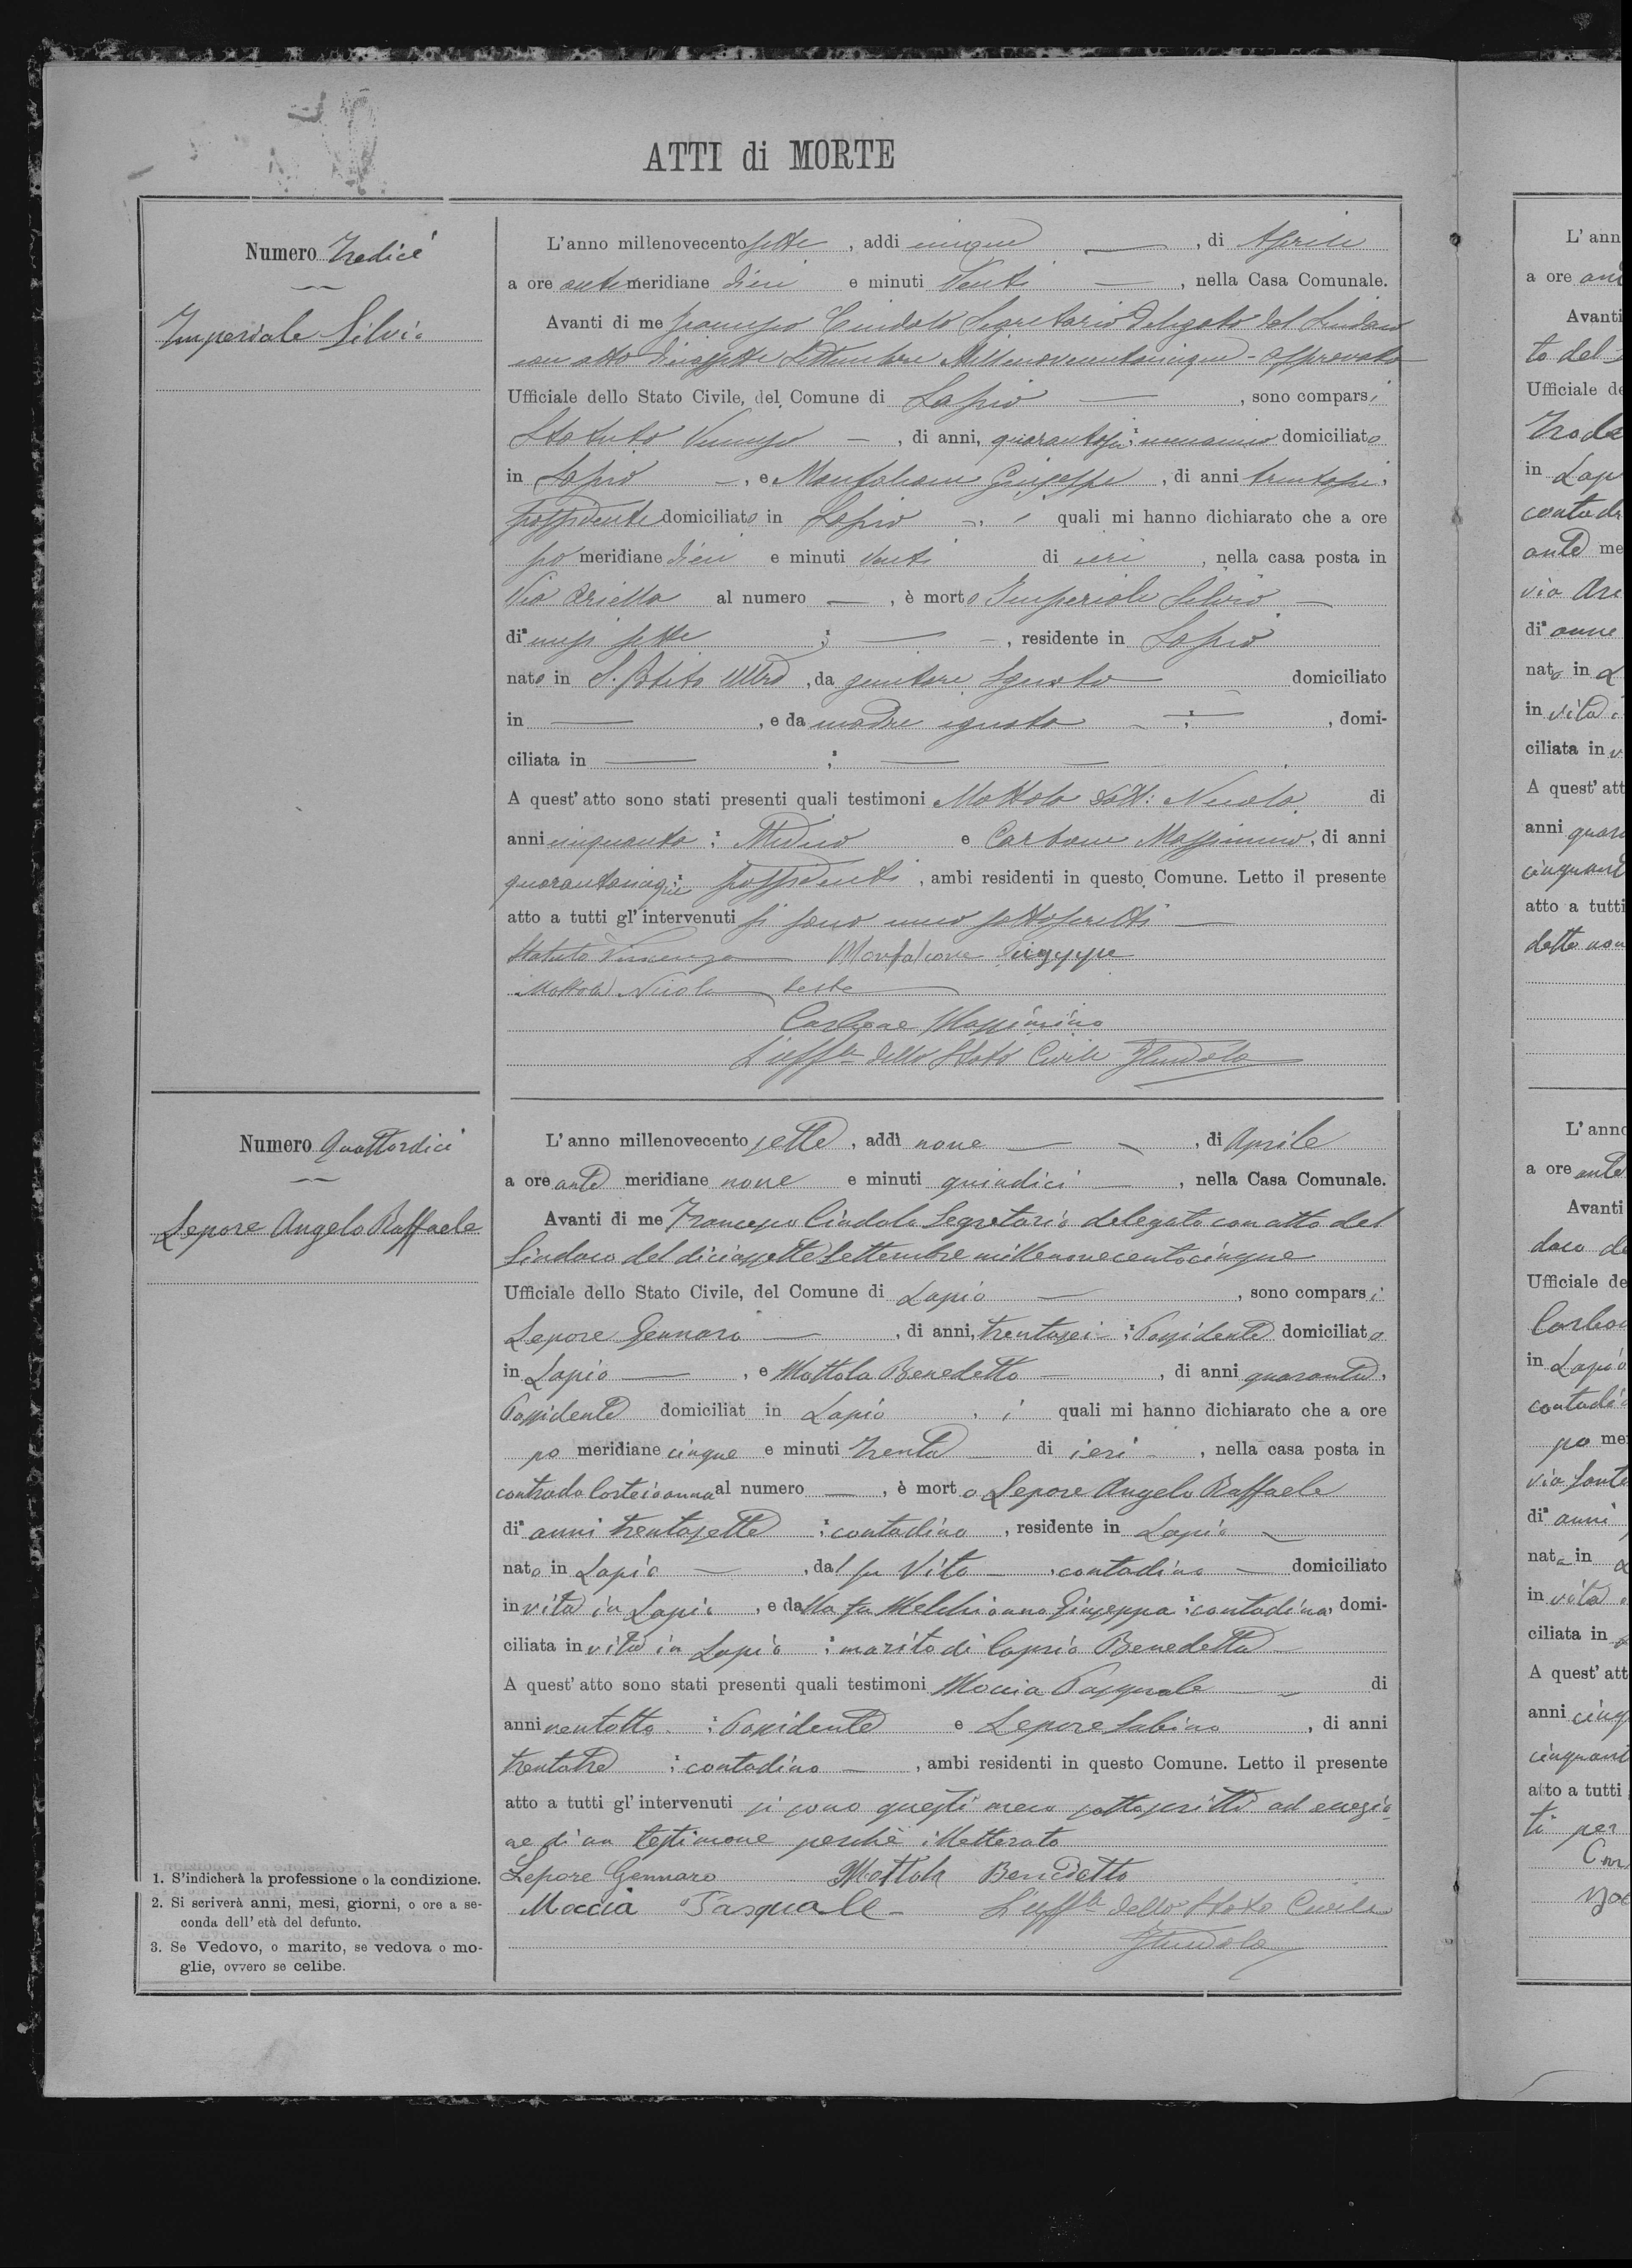 ATTI di MORTE
Numero Tredici
Imperiale Silvio
L'anno millenovecentosette, addi cinque — , di Aprile
a ore antemeridiane dieci e minuti Venti — , nella Casa Comunale.
Avanti di me Francesco Cindolo Segretario Delegato dal Sindaco
con atto diciassette Settembre Millenovecentocinque - approvato
Ufficiale dello Stato Civile, del Comune di Lapio — , sono comparsi
Statuto Vincenzo — , di anni, quarantasei : domiciliato
in Lapio —, e Monfalcone Giuseppe , di anni trentasei,
possidente domiciliato in Lapio —, i quali mi hanno dichiarato che a ore
po meridiane dieci e minuti Venti di ieri , nella casa posta in
Via Ariella al numero — , è morto Imperiale Silvio —
di mesi sette ; — —, residente in Lapio
nato in S. Potito Ultra , da genitore Ignoto — domiciliato
in — , e da madre ignota — : — , domi-
ciliata in — : — — .
A quest' atto sono stati presenti quali testimoni Mottola Dott: Nicola di
anni cinquanta : Medico e Carbone Massimino, di anni
quarantacinque : possidenti , ambi residenti in questo Comune. Letto il presente
atto a tutti gl' intervenuti si sono meco sottoscritti —
Statuto Vincenzo — Monfalcone Giuseppe
Mottola Nicola teste
Carbone Massimino
L'uff.le dello Stato Civile FCindolo
Numero Quattordici
Lepore Angelo Raffaele
L' anno millenovecento sette , addì nove — — , di Aprile
a ore ante meridiane nove e minuti quindici — , nella Casa Comunale.
Avanti di me Francesco Cindolo Segretario delegato con atto del
Sindaco del diciassette Settembre millenovecentocinque
Ufficiale dello Stato Civile, del Comune di Lapio — , sono comparsi
Lepore Gennaro — , di anni, trentasei : Possidente domiciliato
in Lapio — , e Mottola Benedetto — , di anni quaranta,
Possidente domiciliat in Lapio , i quali mi hanno dichiarato che a ore
po meridiane cinque e minuti trenta — di ieri — , nella casa posta in
contrada Corteioanna al numero — , è morto Lepore Angelo Raffaele
di anni trentasette : contadino , residente in Lapio —
nato in Lapio — , dal fu Vito — , contadino — domiciliato
in vita in Lapio , e dalla fu Melchionna Giuseppa : contadina, domi-
ciliata in vita in Lapio : marito di Caprio Benedetta —
A quest' atto sono stati presenti quali testimoni Moccia Pasquale — — di
anni ventotto : Possidente e Lepore Sabino , di anni
trentatre : contadino — , ambi residenti in questo Comune. Letto il presente
atto a tutti gl' intervenuti si sono questi meco sottoscritti ad eccezio
ne di un testimone perchè illetterato
Lepore Gennaro Mottola Benedetto
Moccia Pasquale — L'uff.le dello Stato Civile
FCindolo
1. S'indicherà la professione o la condizione.
2. Si scriverà anni, mesi, giorni, o ore a se-
conda dell' età del defunto.
3. Se Vedovo, o marito, se vedova o mo-
glie, ovvero se celibe.
L' ann
a ore
Avanti
to del
Ufficiale de
in Lap
contad
ante me
via Ari
di anne
nato in L
in vita
ciliata in v
A quest' att
anni quara
cinquant
atto a tutti
detto non
L' anno
a ore ante
Avanti
daco de
Ufficiale de
Carbo
in Lapio
contadi
po me
via Fonte
di anni
nata in
in vita
ciliata in
A quest' att
anni cinq
cinquant
atto a tutti
ti per